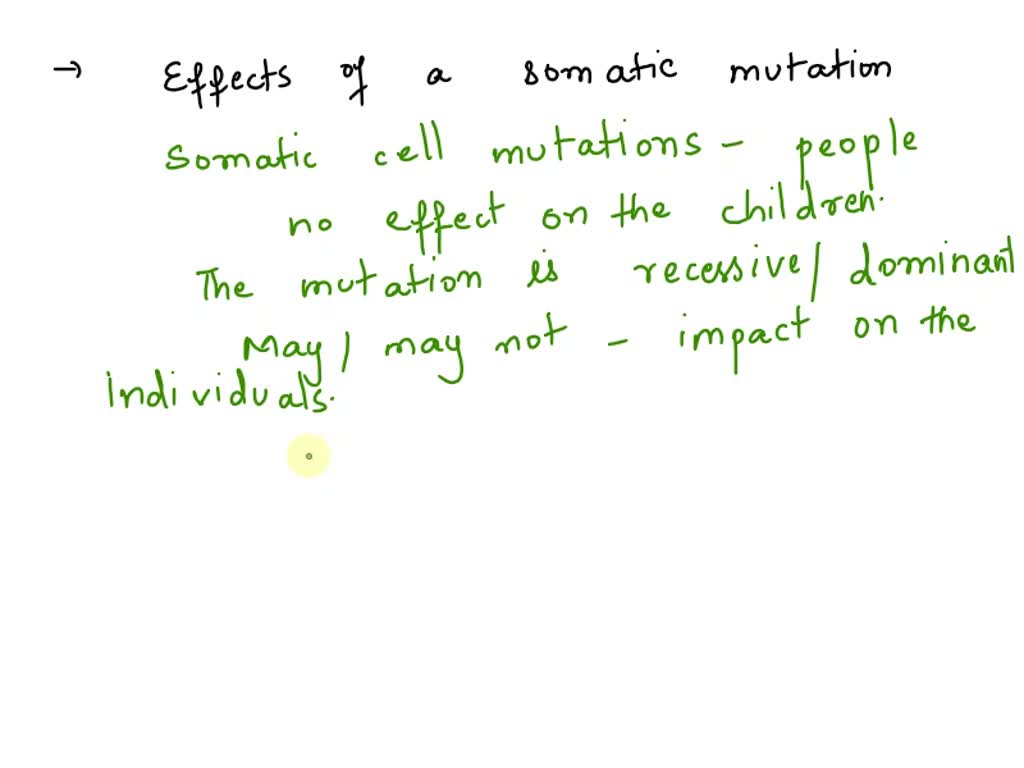 → Effects of a somatic mutation
somatic cell mutations - people
no effect on the children.
The mutation is recessive/ dominant
May/ may not - impact on the
individuals.